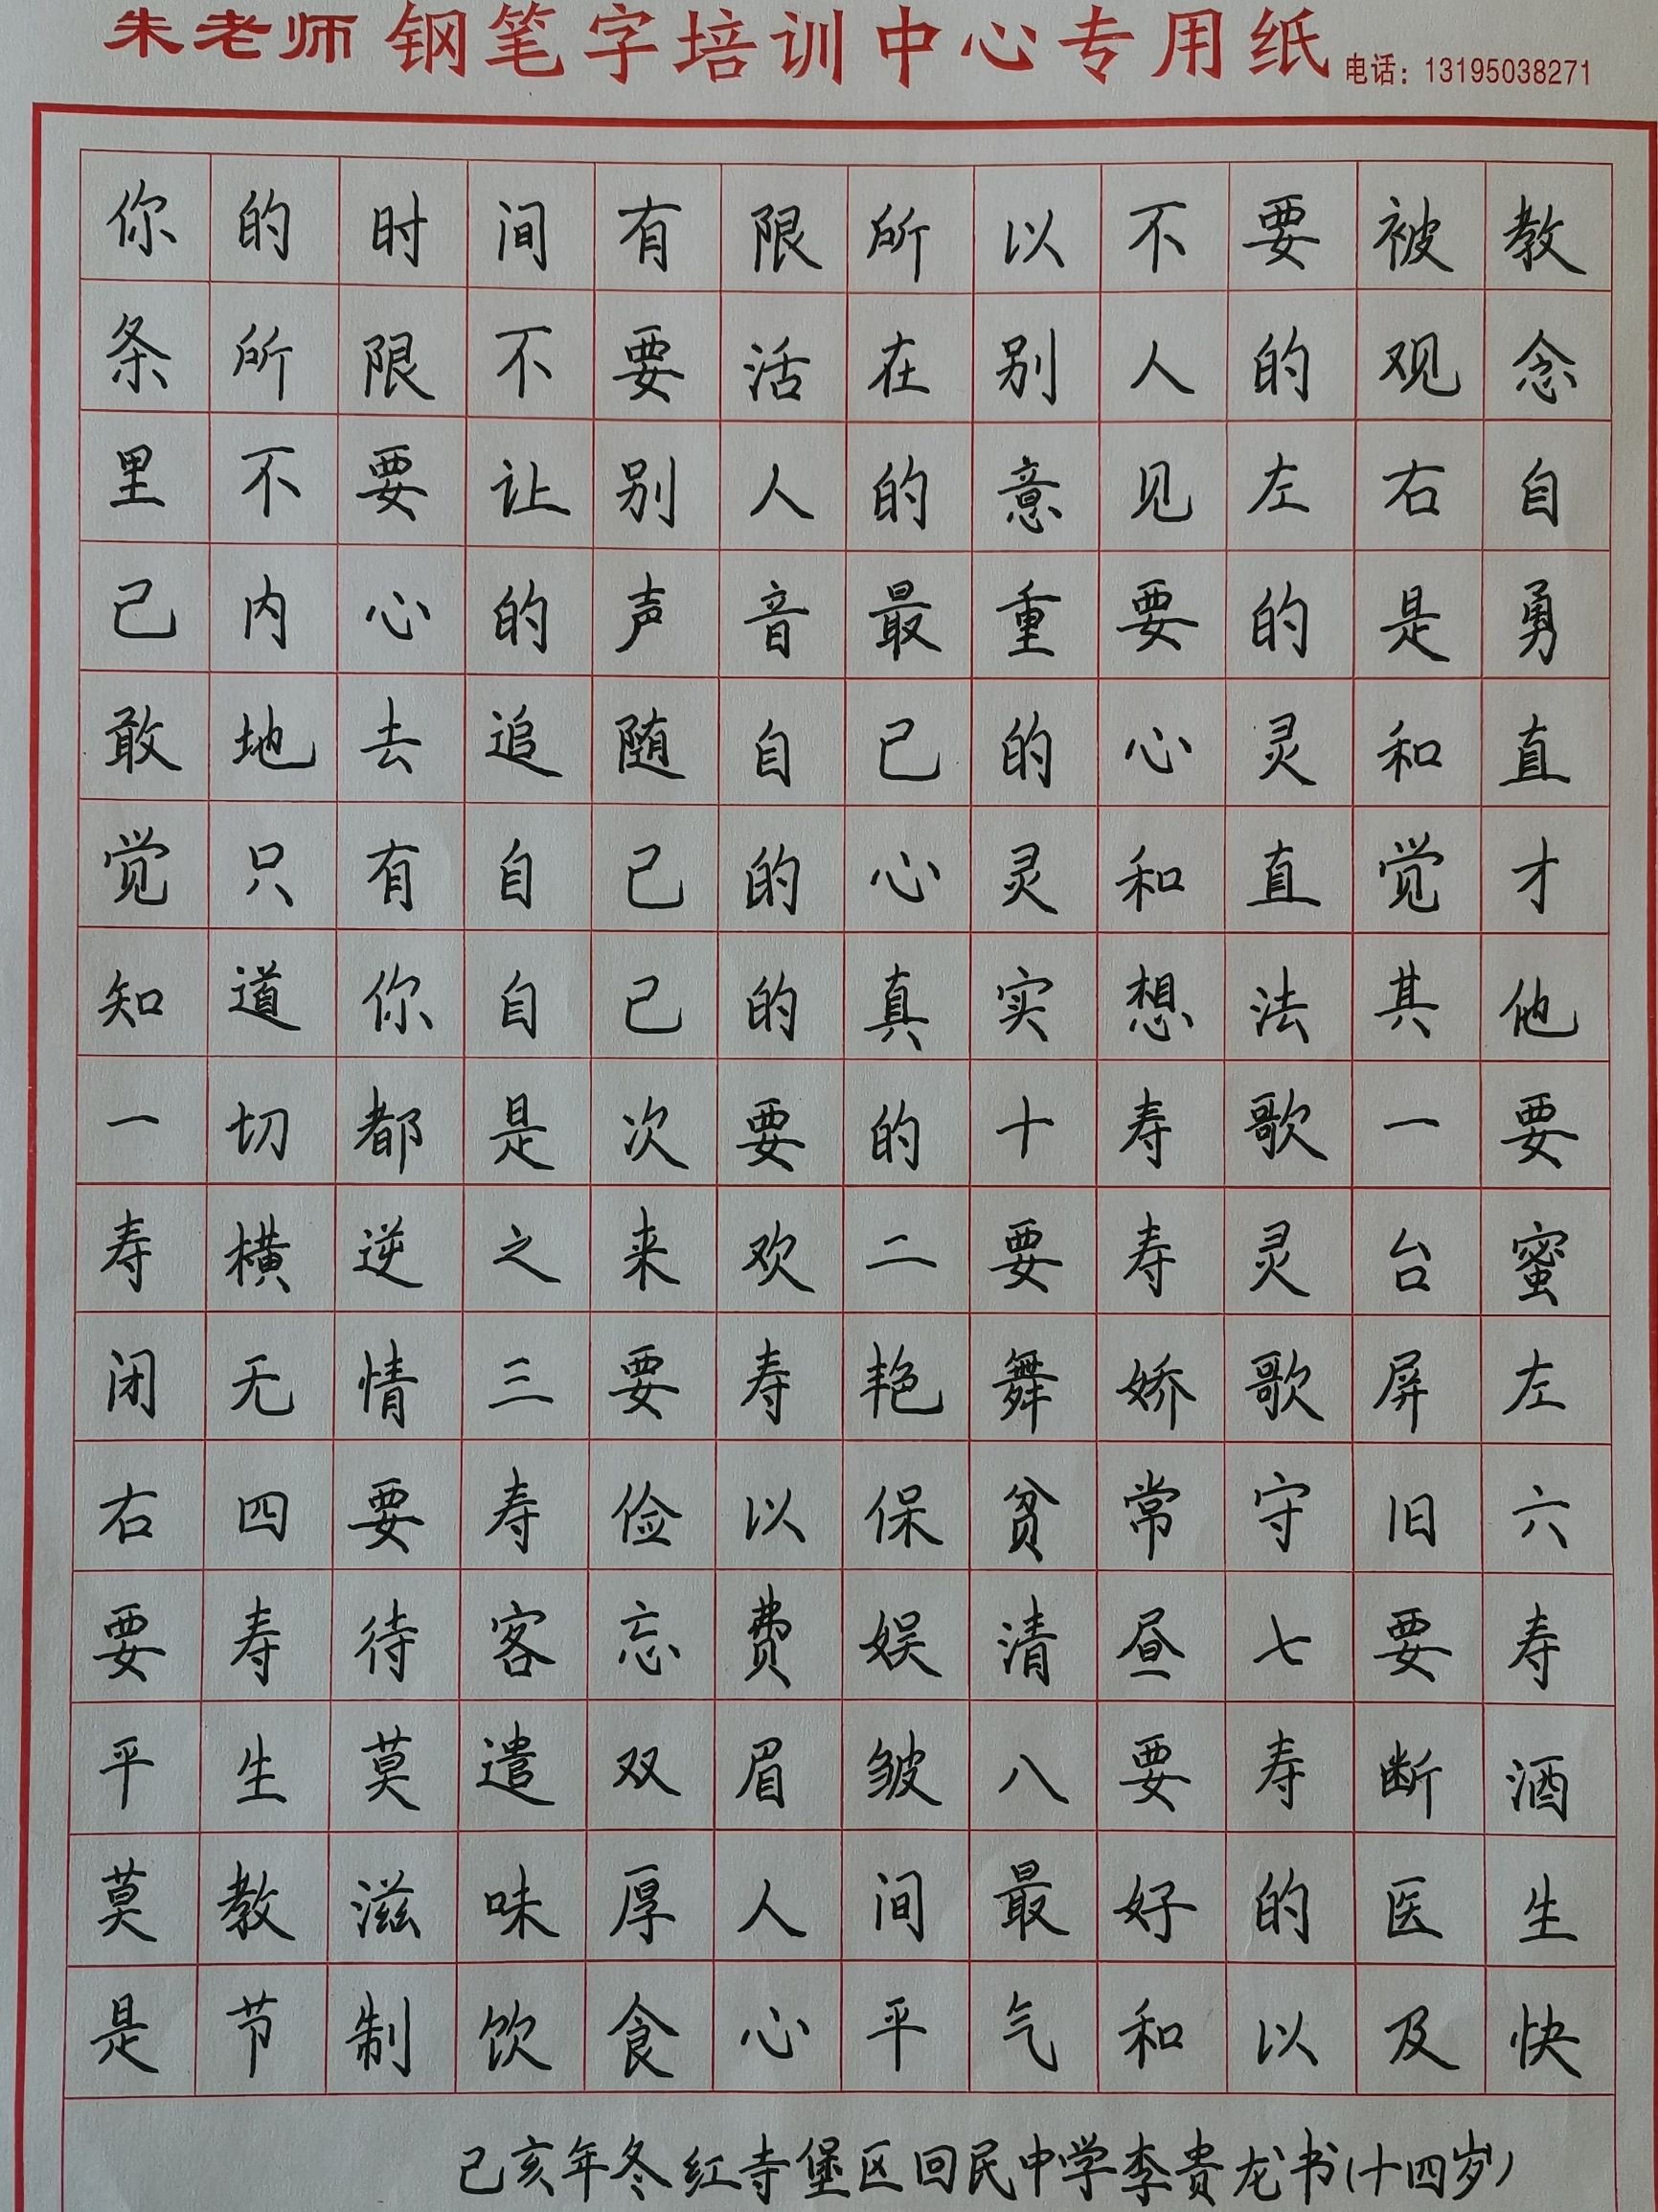 朱老师钢笔字培训中心专用纸 电话：13195038271
你的时间有限所以不要被教
条所限不要活在别人的观念
里不要让别人的意见左右自
己内心的声音最重要的是勇
敢地去追随自己的心灵和直
觉只有自己的心灵和直觉才
知道你自己的真实想法其他
一切都是次要的十寿歌一要
寿横逆之来欢二要寿灵台蜜
闭无情三要寿艳舞娇歌屏左
右四要寿俭以保贫常守旧六
要寿待客忘费娱清昼七要寿
平生莫遣双眉皱八要寿断酒
莫教滋味厚人间最好的医生
是节制饮食心平气和以及快
己亥年冬红寺堡区回民中学李贵龙书(十四岁)